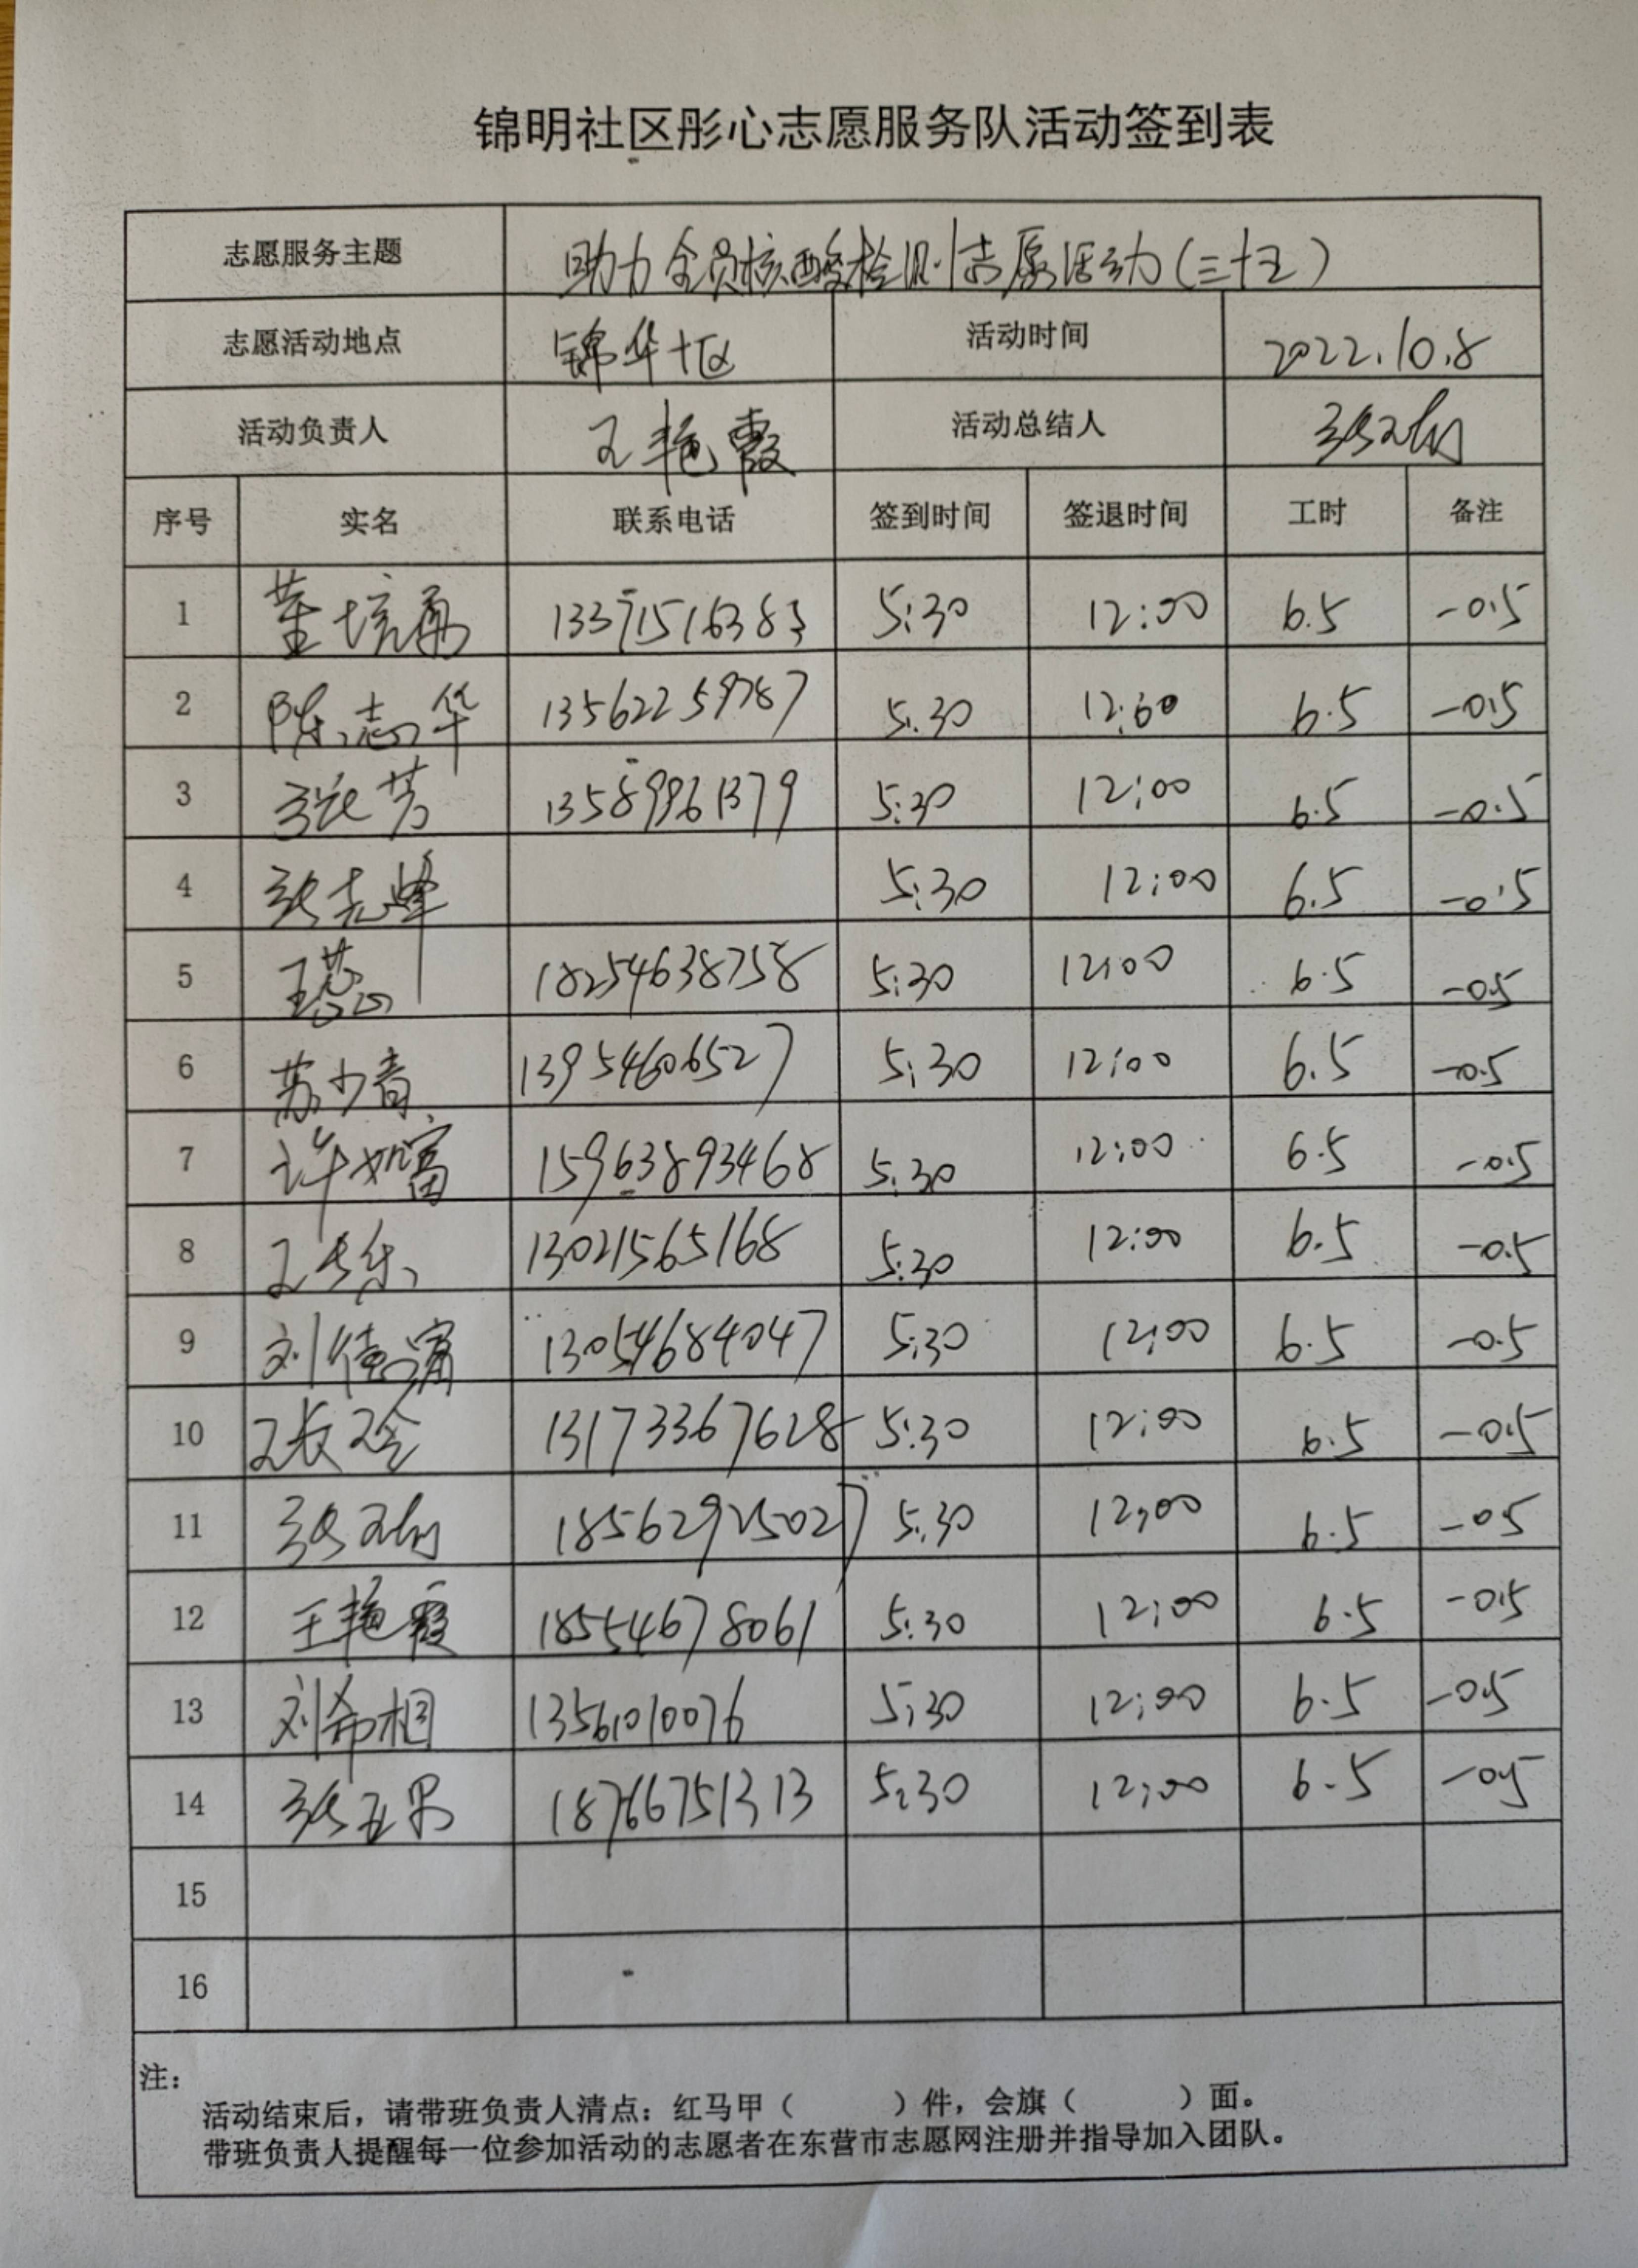 锦明社区彤心志愿服务队活动签到表
志愿服务主题 助力全员核酸检测志愿活动(三十五)
志愿活动地点 锦华十区 活动时间 2022.10.8
活动负责人 王艳霞 活动总结人 张
序号 实名 联系电话 签到时间 签退时间 工时 备注
1 董 13371516383 5:30 12:00 6.5 -0.5
2 陈志华 13562259787 5:30 12:00 6.5 -0.5
3 张芳 13589961379 5:30 12:00 6.5 -0.5
4 张志峰 5:30 12:00 6.5 -0.5
5 王蕊 18254638758 5:30 12:00 6.5 -0.5
6 苏少青 13954606527 5:30 12:00 6.5 -0.5
7 许如富 15963893468 5:30 12:00 6.5 -0.5
8 王 13021565168 5:30 12:00 6.5 -0.5
9 刘倩 13054684047 5:30 12:00 6.5 -0.5
10 王 13173367628 5:30 12:00 6.5 -0.5
11 张 18562925027 5:30 12:00 6.5 -0.5
12 王艳霞 18554678061 5:30 12:00 6.5 -0.5
13 刘希相 13561010076 5:30 12:00 6.5 -0.5
14 张 18766751313 5:30 12:00 6.5 -0.5
15
16
注:
活动结束后,请带班负责人清点:红马甲( )件,会旗( )面。
带班负责人提醒每一位参加活动的志愿者在东营市志愿网注册并指导加入团队。